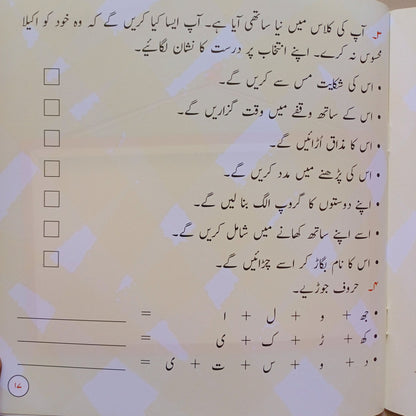 ۳۔ آپ کی کلاس میں نیا ساتھی آیا ہے۔ آپ ایسا کیا کریں گے کہ وہ خود کو اکیلا
محسوس نہ کرے۔ اپنے انتخاب پر درست کا نشان لگائیے۔
• اس کی شکایت مس سے کریں گے۔
• اس کے ساتھ وقفے میں وقت گزاریں گے۔
• اس کا مذاق اُڑائیں گے۔
• اس کی پڑھنے میں مدد کریں گے۔
• اپنے دوستوں کا گروپ الگ بنا لیں گے۔
• اسے اپنے ساتھ کھانے میں شامل کریں گے۔
• اس کا نام بگاڑ کر اسے چڑائیں گے۔
۴۔ حروف جوڑیے۔
• جھ + و + ل + ا =
• کھ + ڑ + ک + ی =
• د + و + س + ت + ی =
۱۷